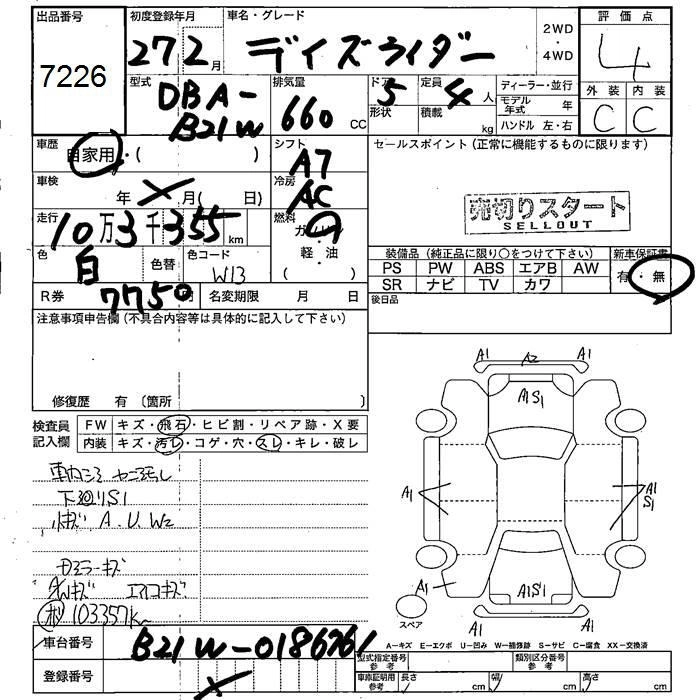 出品番号
7226
初度登録年月
27 2 月
車名・グレード
デイズライダー
2WD
・
4WD
評価点
4
外装 内装
C C
型式
DBA-
B21W
排気量
660 CC
ドア 5
形状
定員 4 人
積載 kg
ディーラー・並行
モデル年式 年
ハンドル 左・右
車歴
自家用・( )
シフト
A7
セールスポイント (正常に機能するものに限ります)
売切りスタート
SELLOUT
車検
年 月( 日)
冷房
AC
走行
10万3千355km
燃料
ガソリン
軽・油
色
白
色替
色コード
W13
R券 7750円
名変期限 月 日
装備品 (純正品に限り○をつけて下さい)
PS PW ABS エアB AW
SR ナビ TV カワ
新車保証書
有・無
後日品
注意事項申告欄 (不具合内容等は具体的に記入して下さい)
修復歴 有 〔箇所 〕
検査員記入欄
FW キズ・飛石・ヒビ割・リペア跡・X要
内装 キズ・汚レ・コゲ・穴・スレ・キレ・破レ
下廻りS1
小キズ A.U.W2
エアロキズ
103357km
A1 A2 A1
A1S1
A1
A1
S1
A1
A1S1
スペア
A1
A-キズ E-エクボ U-凹み W-補修跡 S-サビ C-腐食 XX-交換済
車台番号
B21W-0186761
登録番号
型式指定番号 参考
類別区分番号 参考
車庫証明用 参考
長さ cm 幅 cm 高さ cm